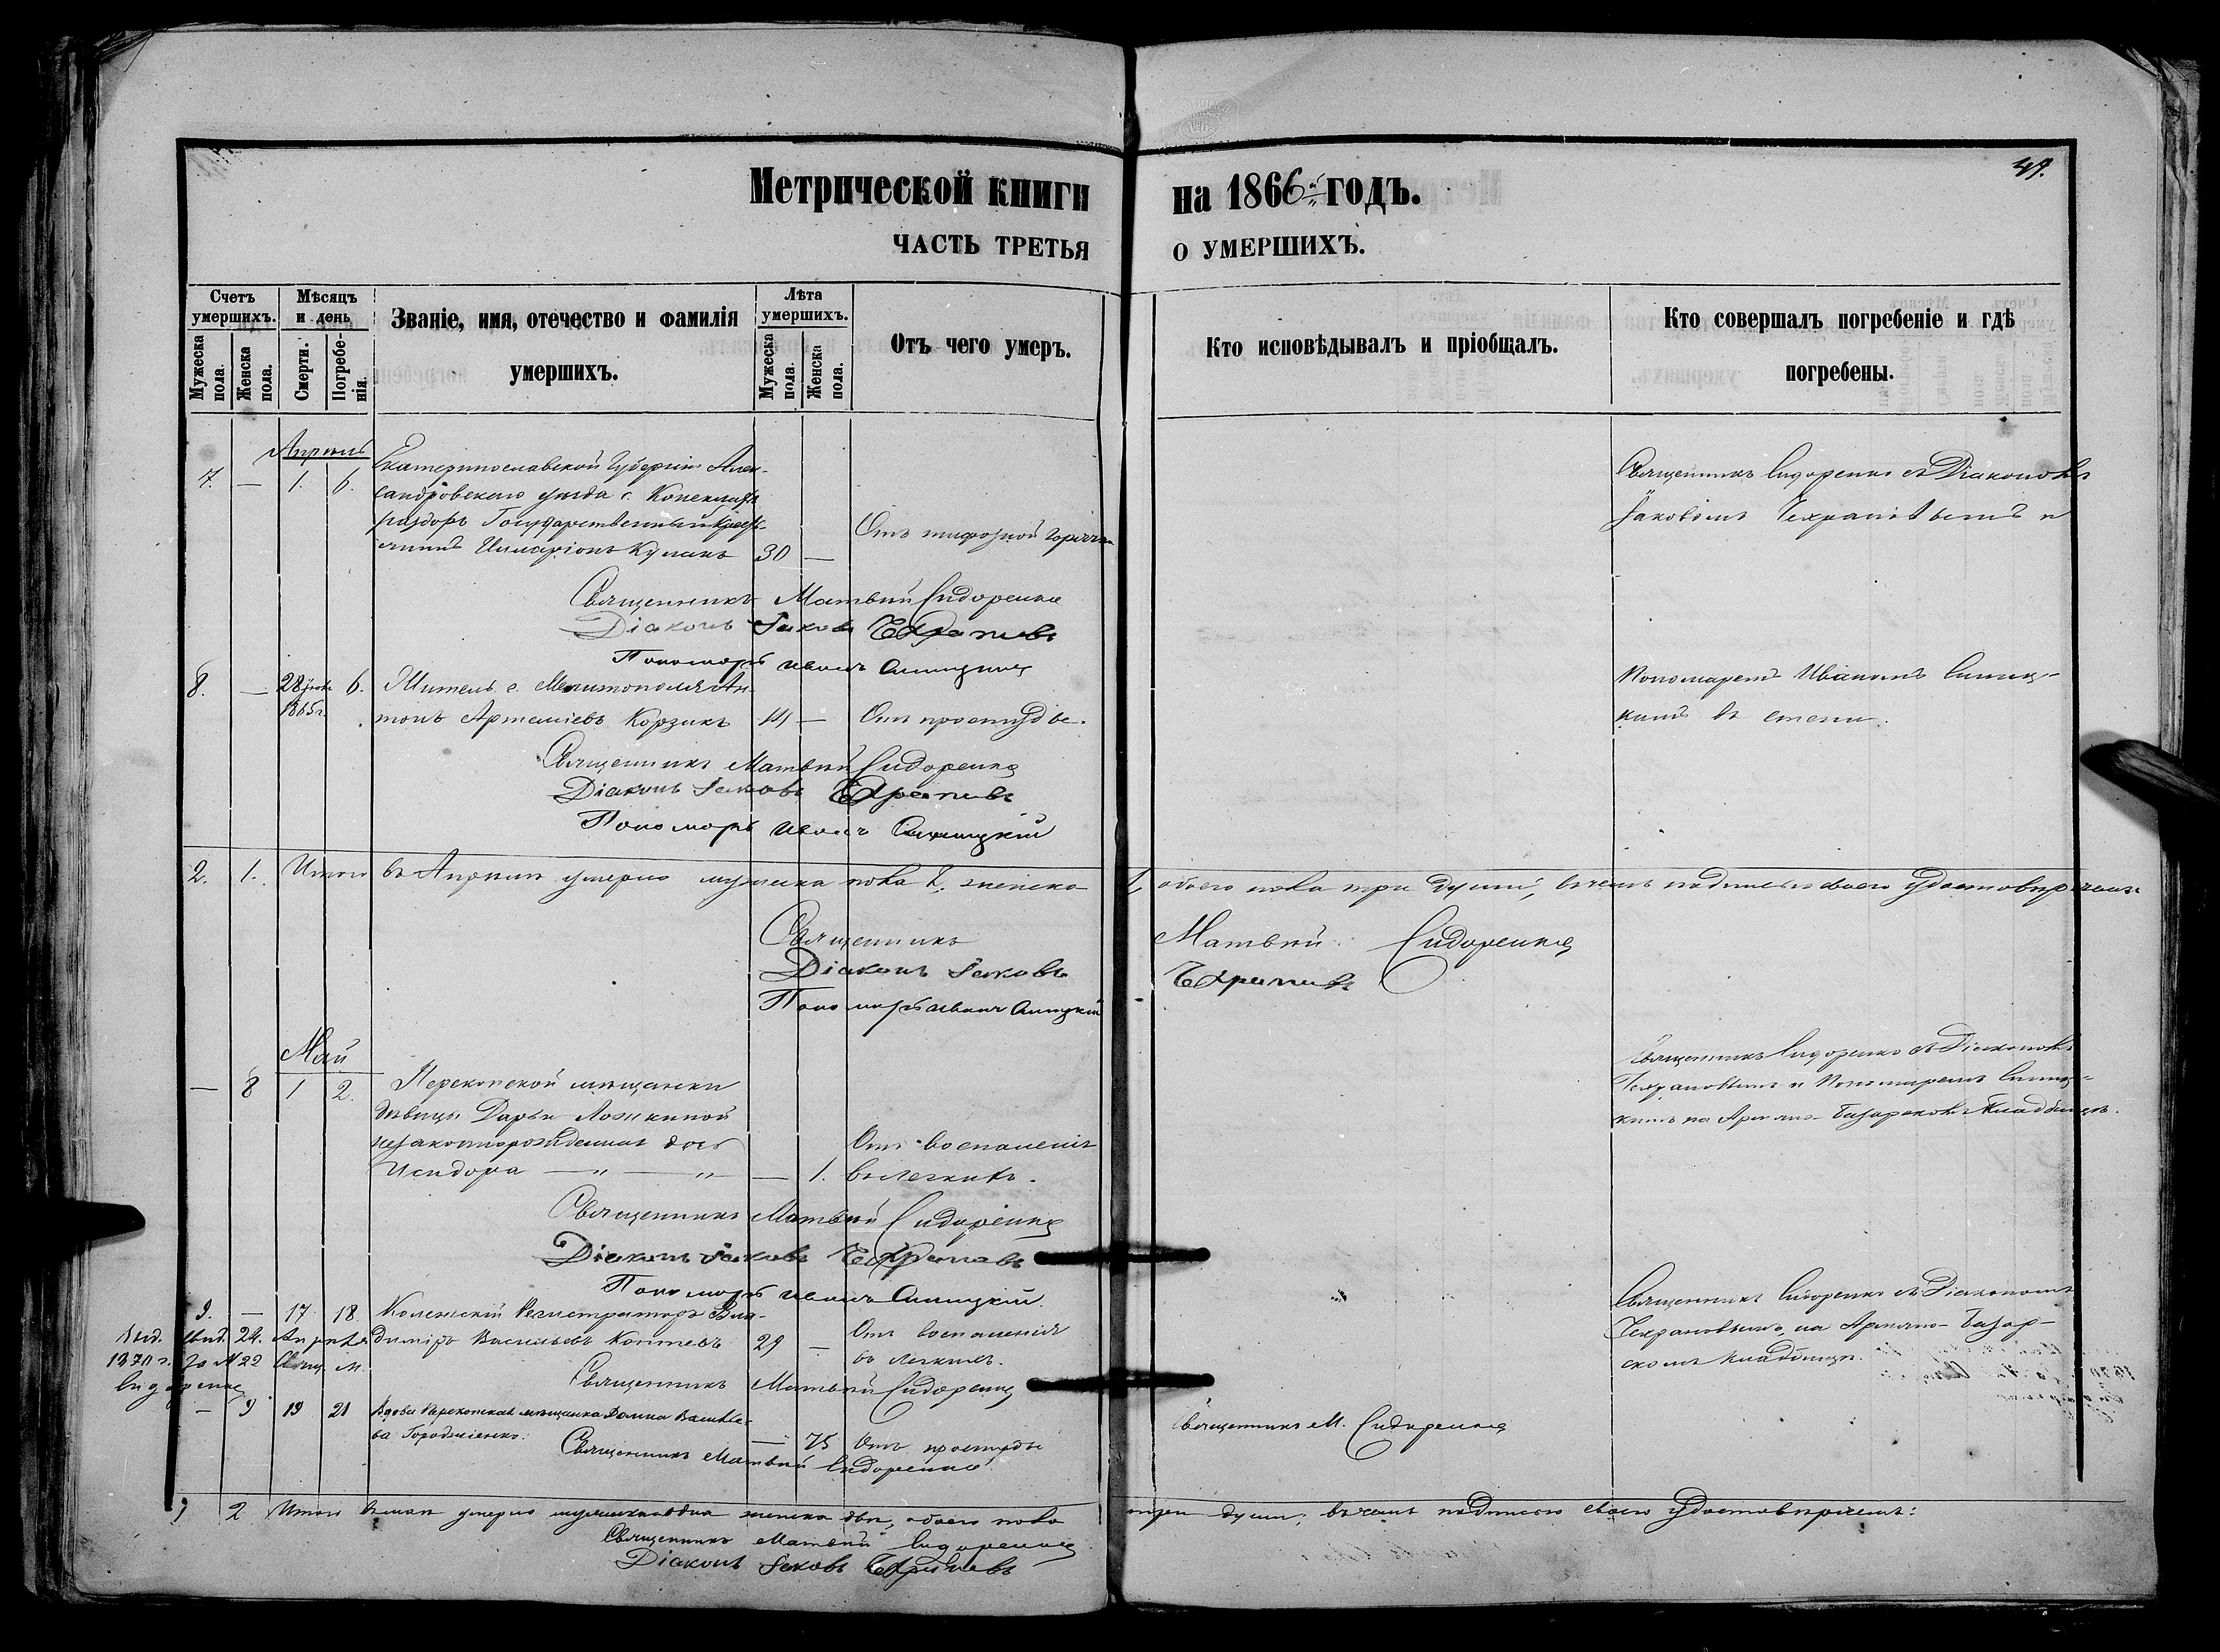 49.
Метрической книги на 1866й годъ.
ЧАСТЬ ТРЕТЬЯ О УМЕРШИХЪ.
Счетъ умершихъ.
Мужеска пола.
Женска пола.
Мѣсяцъ и день
Смерти.
Погребенія.
Званіе, имя, отечество и фамилія
умершихъ.
Лѣта умершихъ.
Мужеска пола.
Женска пола.
Отъ чего умеръ.
Кто исповѣдывалъ и пріобщалъ.
Кто совершалъ погребеніе и гдѣ
погребены.
Апрель
7. — 1. 6. Екатеринославской Губерніи Алек-
сандровскаго уѣзда с.
Государственный крест-
янинъ Илларіонъ Кулакъ 30 — Отъ тифозной горячки
Священникъ Сидоренко съ Діакономъ
Іаковомъ и
Священникъ Матвѣй Сидоренко
Діаконъ Іаковъ
Пономарь Иванъ Синицкій
8. — 28 1865г. 6. Житель г. Мелитополя Ан-
тонъ Артеміевъ Корзикъ 14 — Отъ простуды.
Пономаремъ Иваномъ Синиц-
кимъ въ степи.
Священникъ Матвѣй Сидоренко
Діаконъ Іаковъ
Пономарь Иванъ Синицкій
2. 1. Итого въ Апрѣлѣ умерло мужеска пола 2, женска 1, обоего пола три души, въ чемъ подписью своею удостовѣряемъ
Священникъ Матвѣй Сидоренко
Діаконъ Іаковъ
Пономарь Иванъ Синицкій
Май
— 8 1 2. Перекопской мѣщанки
дѣвицы Дарьи Ложкиной
незаконнорожденная дочь
Исидора — „ — „ — 1. Отъ воспаленія
въ легкихъ.
Священникъ Сидоренко съ Діакономъ
и Пономаремъ Синиц-
кимъ на Армяно-Базарскомъ Кладбищѣ.
Священникъ Матвѣй Сидоренко
Діаконъ Іаковъ
Пономарь Иванъ Синицкій
9. — 17. 18. Колежскій Регистраторъ Вла-
димиръ Васильевъ Коптевъ 29 — Отъ воспаленія
въ легкихъ.
Священникъ Сидоренко съ Діакономъ
на Армяно-Базар-
скомъ кладбищѣ.
Выд. свид. 24. Апрѣля
1870 г. за № 22 Свящ. М.
Сидоренко
Священникъ Матвѣй Сидоренко
— 9 19 21 Вдова Перекопская мѣщанка Домна Василье-
ва Городніенко. — 75 Отъ простуды
Священникъ М. Сидоренко
Священникъ Матвѣй Сидоренко
1 2 Итого въ маѣ умерло мужеска одна женска двѣ, обоего пола три души; въ чемъ подписью своею удостовѣряемъ:
Священникъ Матвѣй Сидоренко
Діаконъ Іаковъ